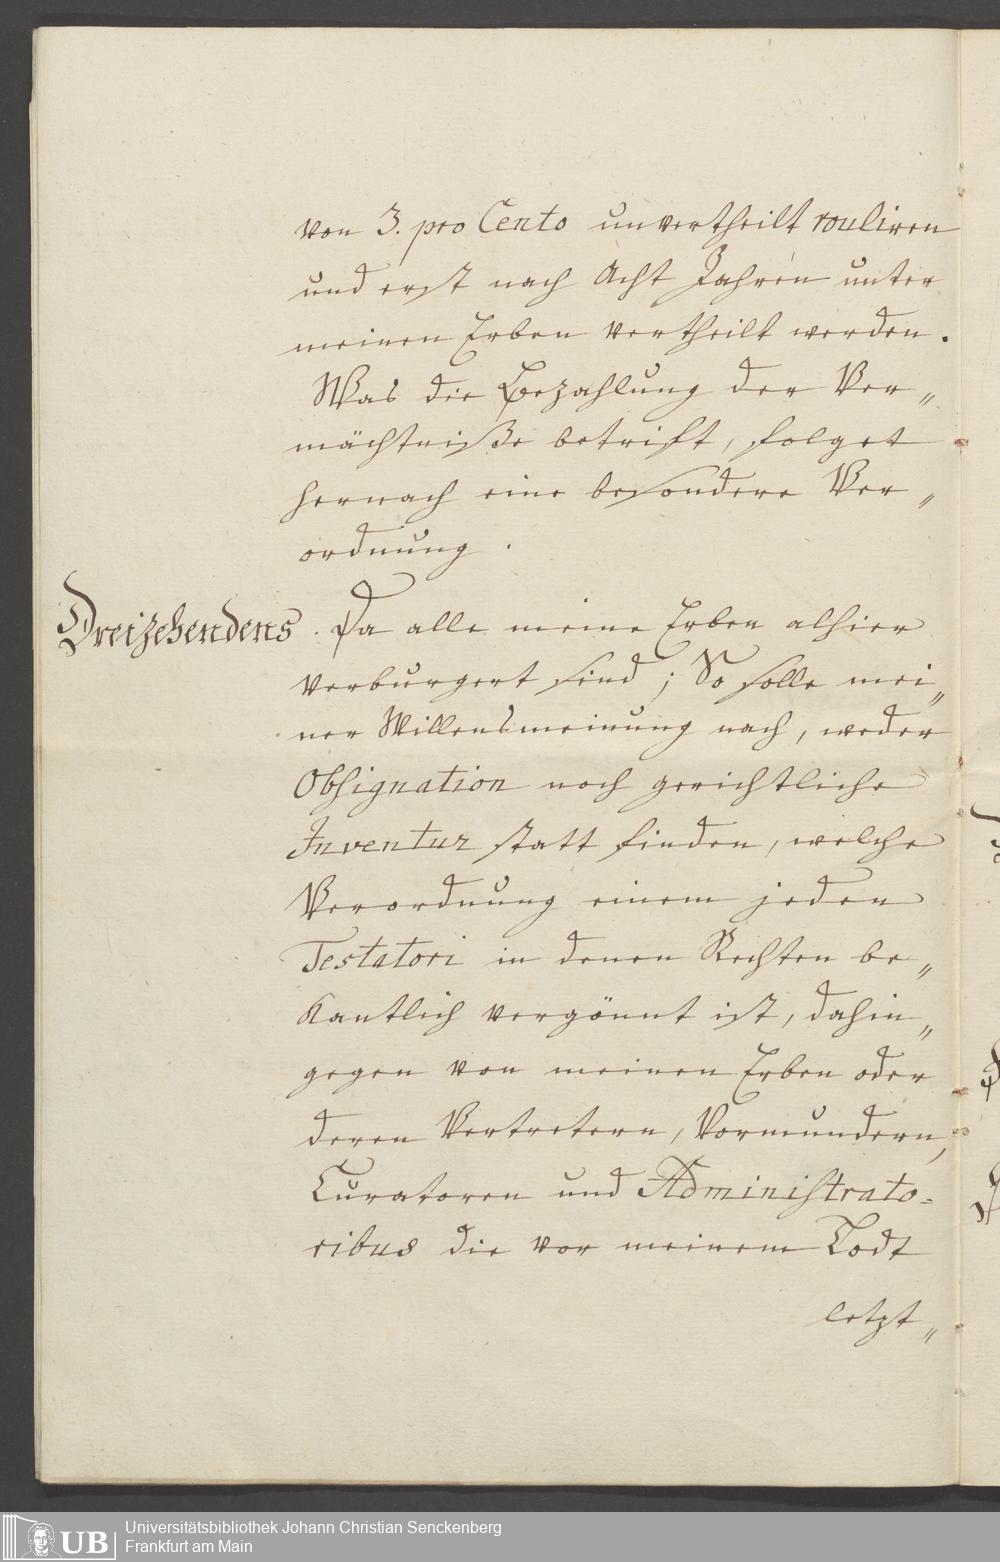 von 3. pro Cento unvertheilt rouliren
und erst nach Acht Jahren unter
meinen Erben vertheilt werden.
Was die Bezahlung der Ver„
mächtniße betrift, folget
hernach eine besondere Ver„
ordnung.
Dreizehendens. Da alle meine Erben alhier
verburgert sind; So solle mei„
ner Willensmeinung nach, weder
Obsignation noch gerichtliche
Inventur statt finden, welche
Verordnung einem jeden
Testatori in denen Rechten be„
kantlich vergönnt ist, dahin„
gegen von meinen Erben oder
deren Vertretern, Vormundern,
Curatoren und Administrato=
ribus die vor meinem Todt
letzt„
UB Universitätsbibliothek Johann Christian Senckenberg
Frankfurt am Main